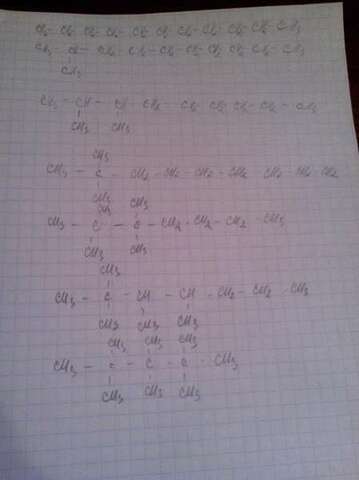 CH3 - CH - CH2 - CH2 - CH2 - CH2 - CH2 - CH2 - CH3
CH3
CH3 - CH - CH - CH2 - CH2 - CH2 - CH2 - CH2 - CH3
CH3 CH3
CH3
CH3 - C - CH2 - CH2 - CH2 - CH2 - CH2 - CH2 - CH3
CH3
CH3 CH3
CH3 - C - C - CH2 - CH2 - CH2 - CH3
CH3 CH3
CH3
CH3 - C - CH - CH - CH2 - CH2 - CH3
CH3 CH3 CH3
CH3 CH3 CH3
CH3 - C - C - C - CH3
CH3 CH3 CH3